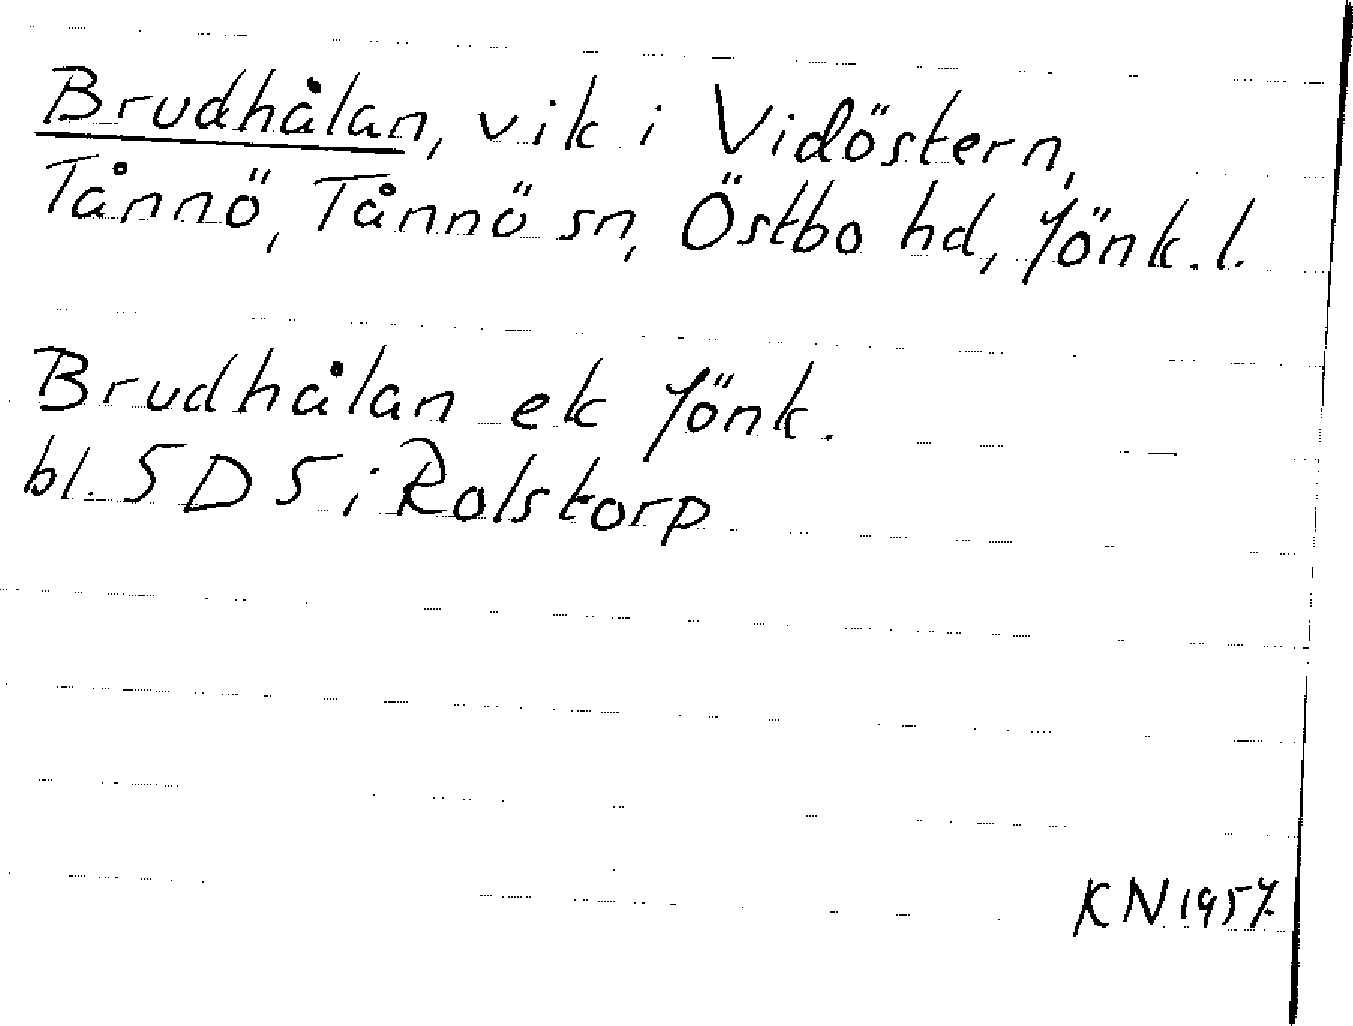 Brudhålan, vik i Vidöstern,
Tånnö, Tånnö sn, Östbo hd, Jönk. l.
Brudhålan ek Jönk.
bl. 5 D 5 i Rolstorp
KN 1957